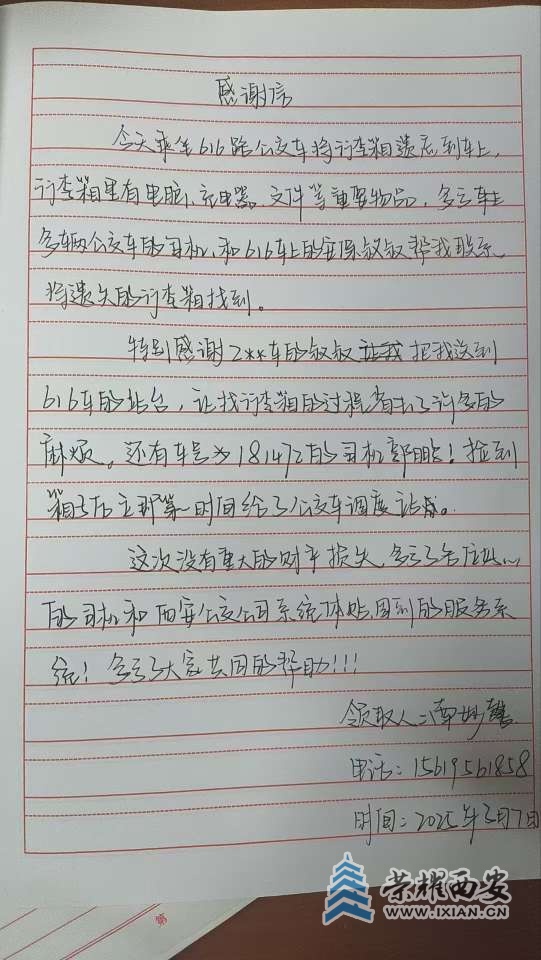 感谢信
今天乘坐616路公交车将行李箱遗忘到车上,
行李箱里有电脑、充电器、文件等重要物品,多亏车上
多辆公交车的司机、和616车上的安保叔叔帮我联系,
将遗失的行李箱找到。
特别感谢2**车的叔叔 把我送到
616车的站台,让找行李箱的过程省去了许多的
麻烦。还有车号为181472的司机郭鹏!捡到
箱子后立那第一时间给了公交车调度站。
这次没有重大的财产损失,多亏了各位
的司机和西安公交公司系统体贴、周到的服务系
统!多亏了大家共同的帮助!!!
领取人:南妙
电话:15619561858
时间:2025年3月7日
荣耀西安
WWW.IXIAN.CN